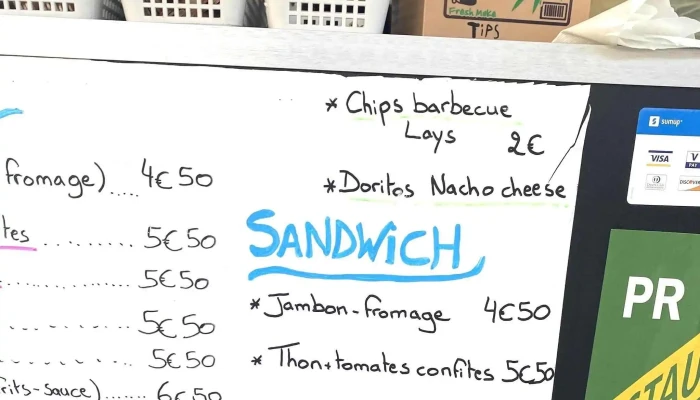 Fresh Make
TiPS
* Chips barbecue
Lays 2€
* Doritos Nacho cheese
fromage)..... 4€50
tes .......... 5€50
.............. 5€50
5€50
5€50
frits-Sauce)....... 6€50
SANDWiCH
* Jambon-fromage 4€50
* Thon+tomates confites 5€50
sumup
VISA
V PAY
DISCOVER
PR
STAU